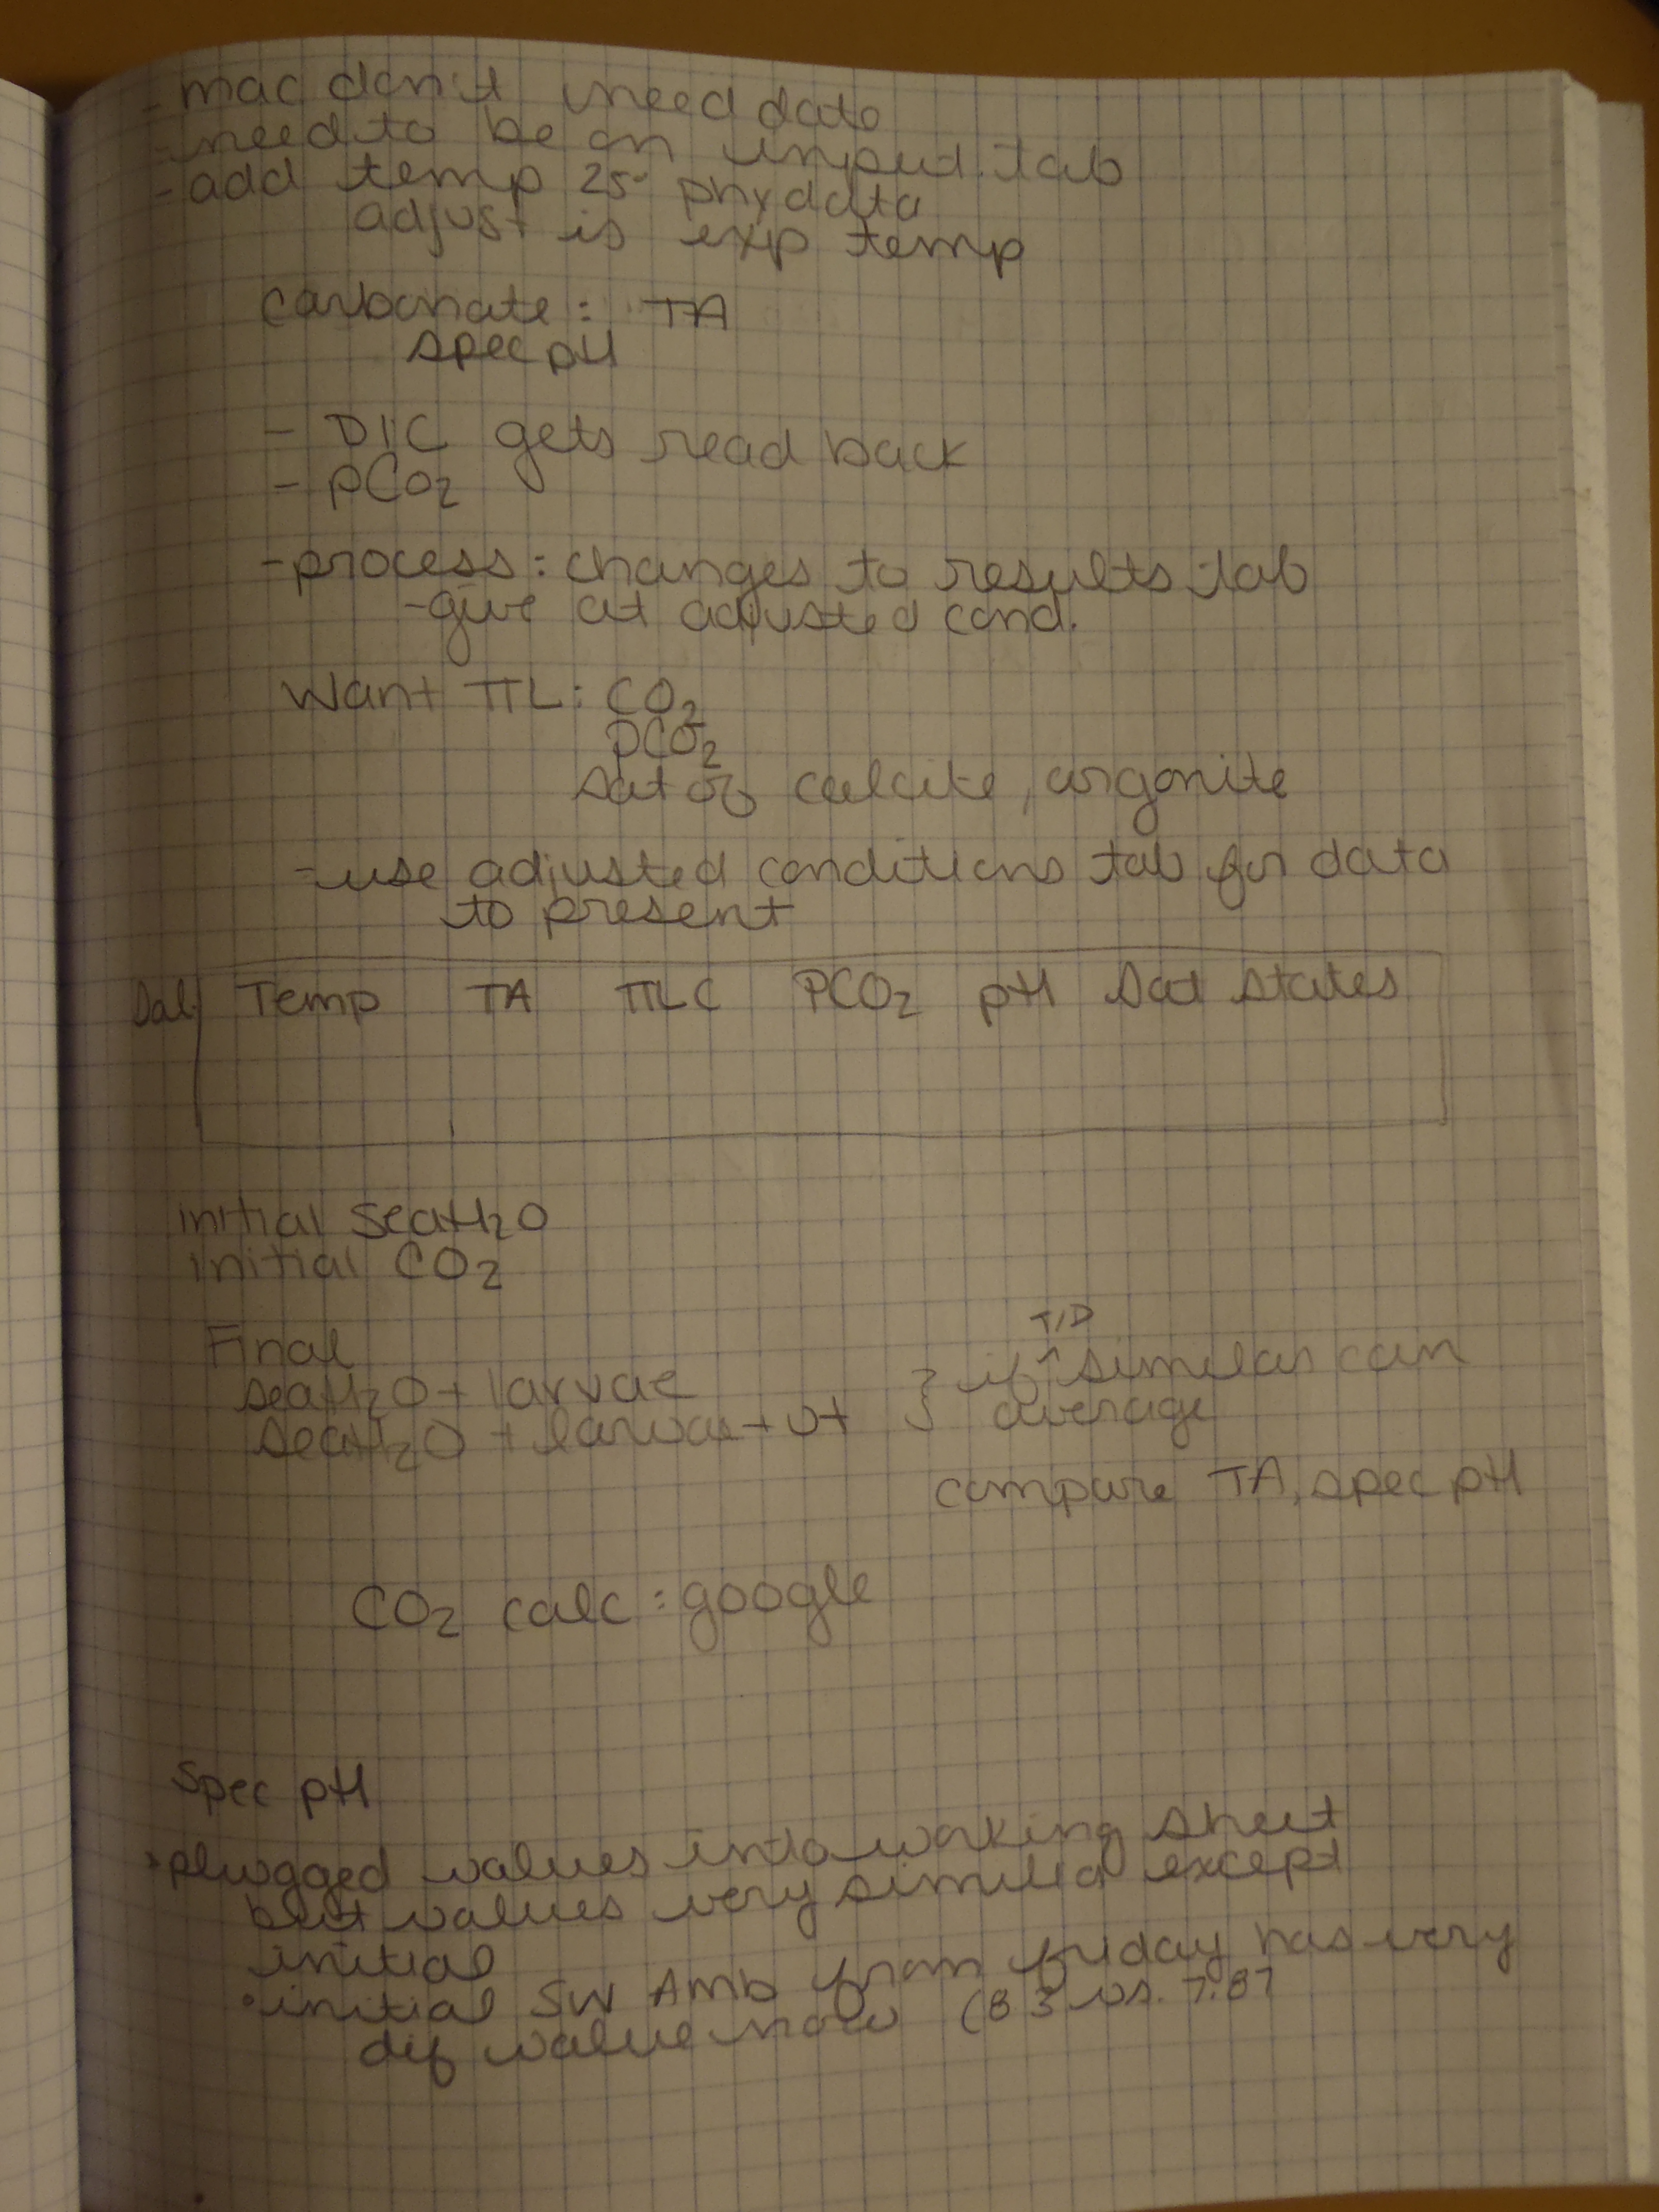 - mac don't need date
- need to be on input tab
- add temp 25° phy data
adjust is exp temp
carbonate: TA
spec pH
- DIC gets read back
- pCO2
- process: changes to results tab
- give at adjusted cond.
Want TTL: CO2
pCO2
sat of calcite, argonite
- use adjusted conditions tab for data
to present
Sal Temp TA TTLC PCO2 pH Sat States
initial SeaH2O
initial CO2
Final
SeaH2O + larvae
SeaH2O + larvae + ot
} if ^ T/D similar can
average
compare TA, spec pH
CO2 calc: google
Spec pH
• plugged values into working sheet
but values very similar except
initial
• initial SW Amb from friday has very
dif value now (8.3 vs. 7.87